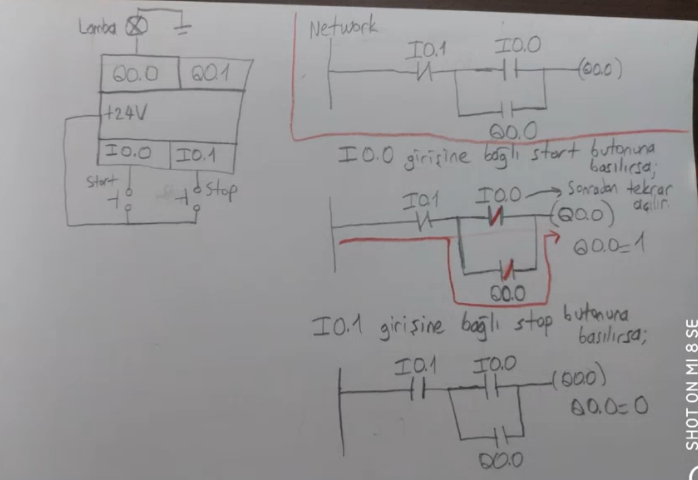 Lamba
Q0.0 Q0.1
+24V
I0.0 I0.1
Start Stop
Network
I0.1 I0.0
(Q0.0)
Q0.0
I0.0 girişine bağlı start butonuna
basılırsa;
I0.1 I0.0 → Sonradan tekrar
açılır.
(Q0.0)
Q0.0=1
Q0.0
I0.1 girişine bağlı stop butonuna
basılırsa;
I0.1 I0.0
(Q0.0)
Q0.0=0
Q0.0
SHOT ON MI 8 SE